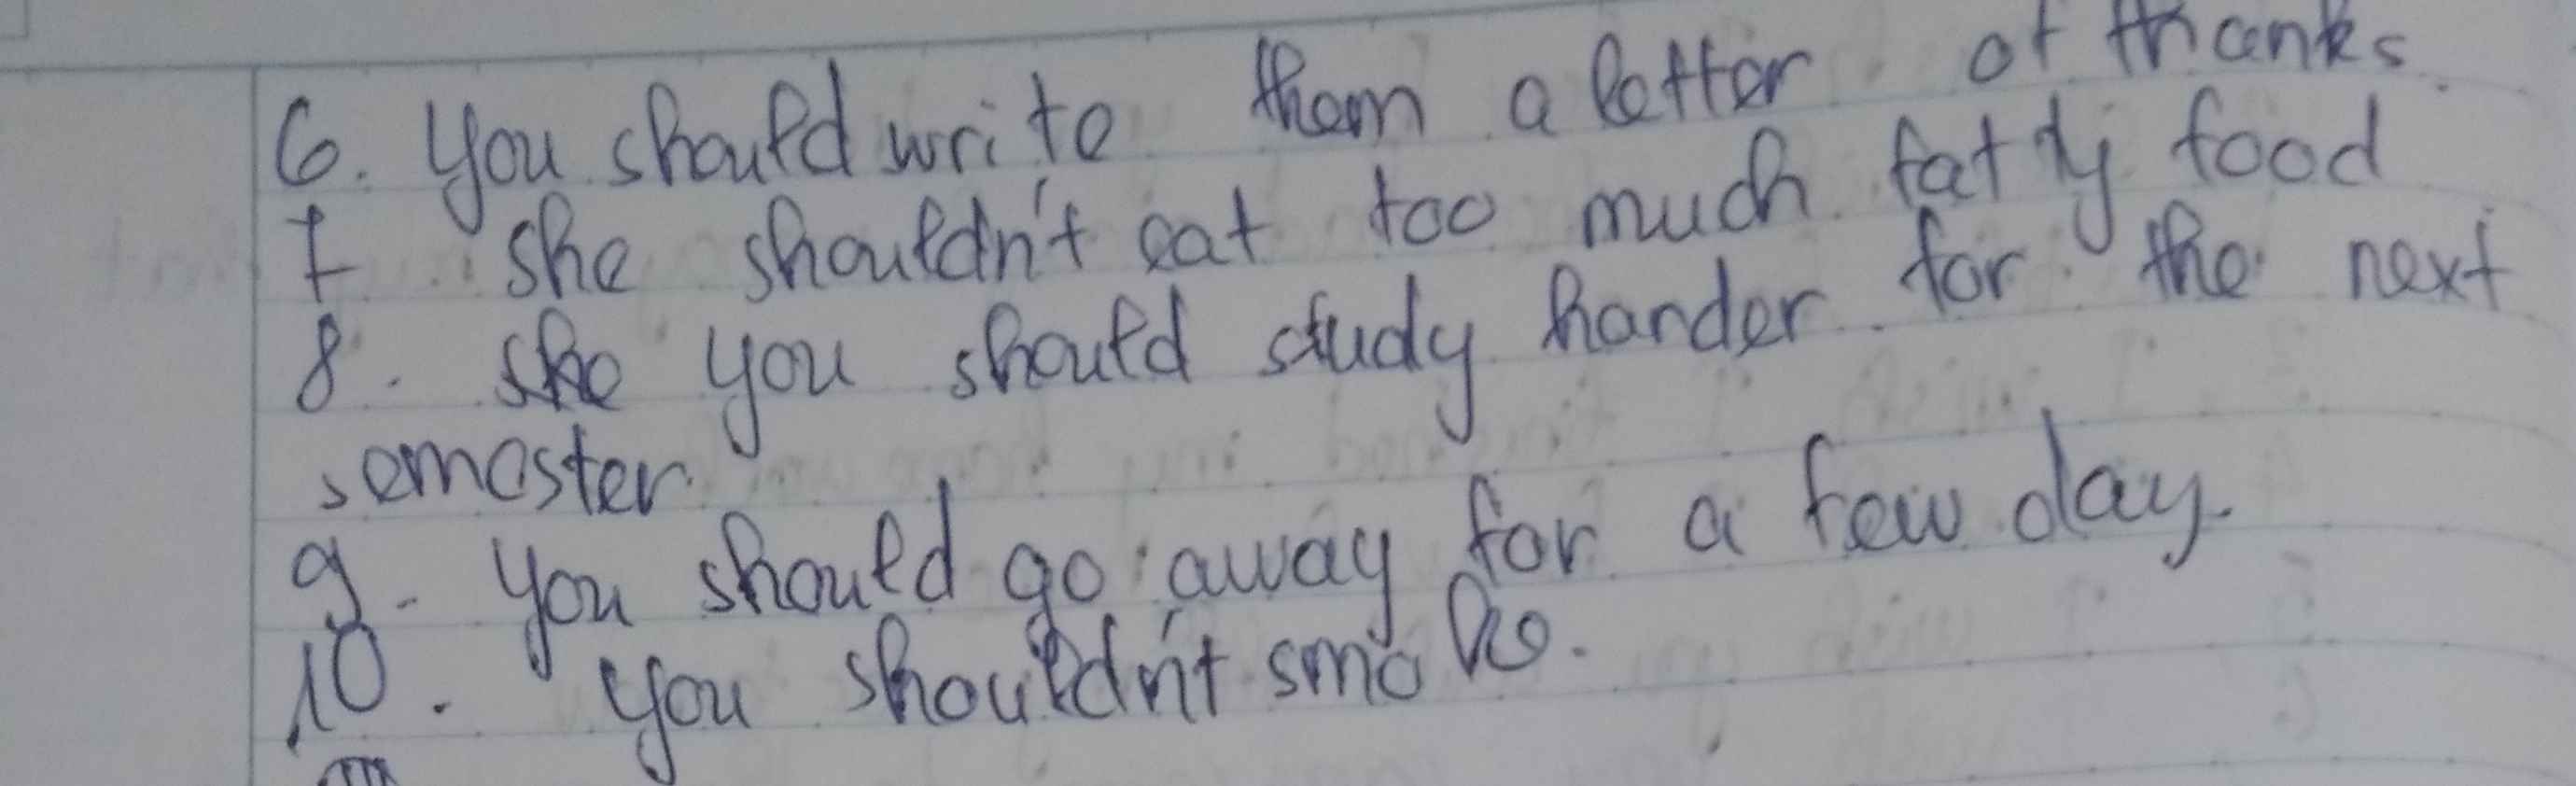 6. You should write them a letter of thanks.
7 She shouldn't eat too much fatty food
8. She you should study harder for the next
semester
9. You should go away for a few day.
10. You shouldn't smoke.